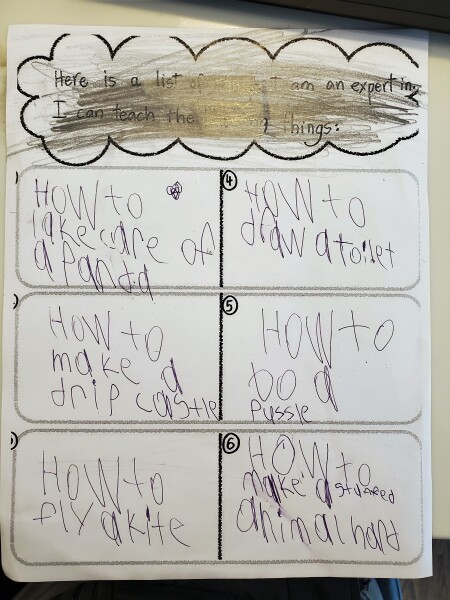 Here is a list of I am an expert in,
I can teach the things:
HOW to
take care of
a panda
HOW to
make a
drip castle
HOW to
fly a kite
4
HOW to
draw a toilet
5
HOW to
Do a
pussle
6
HOW to
make a
animal